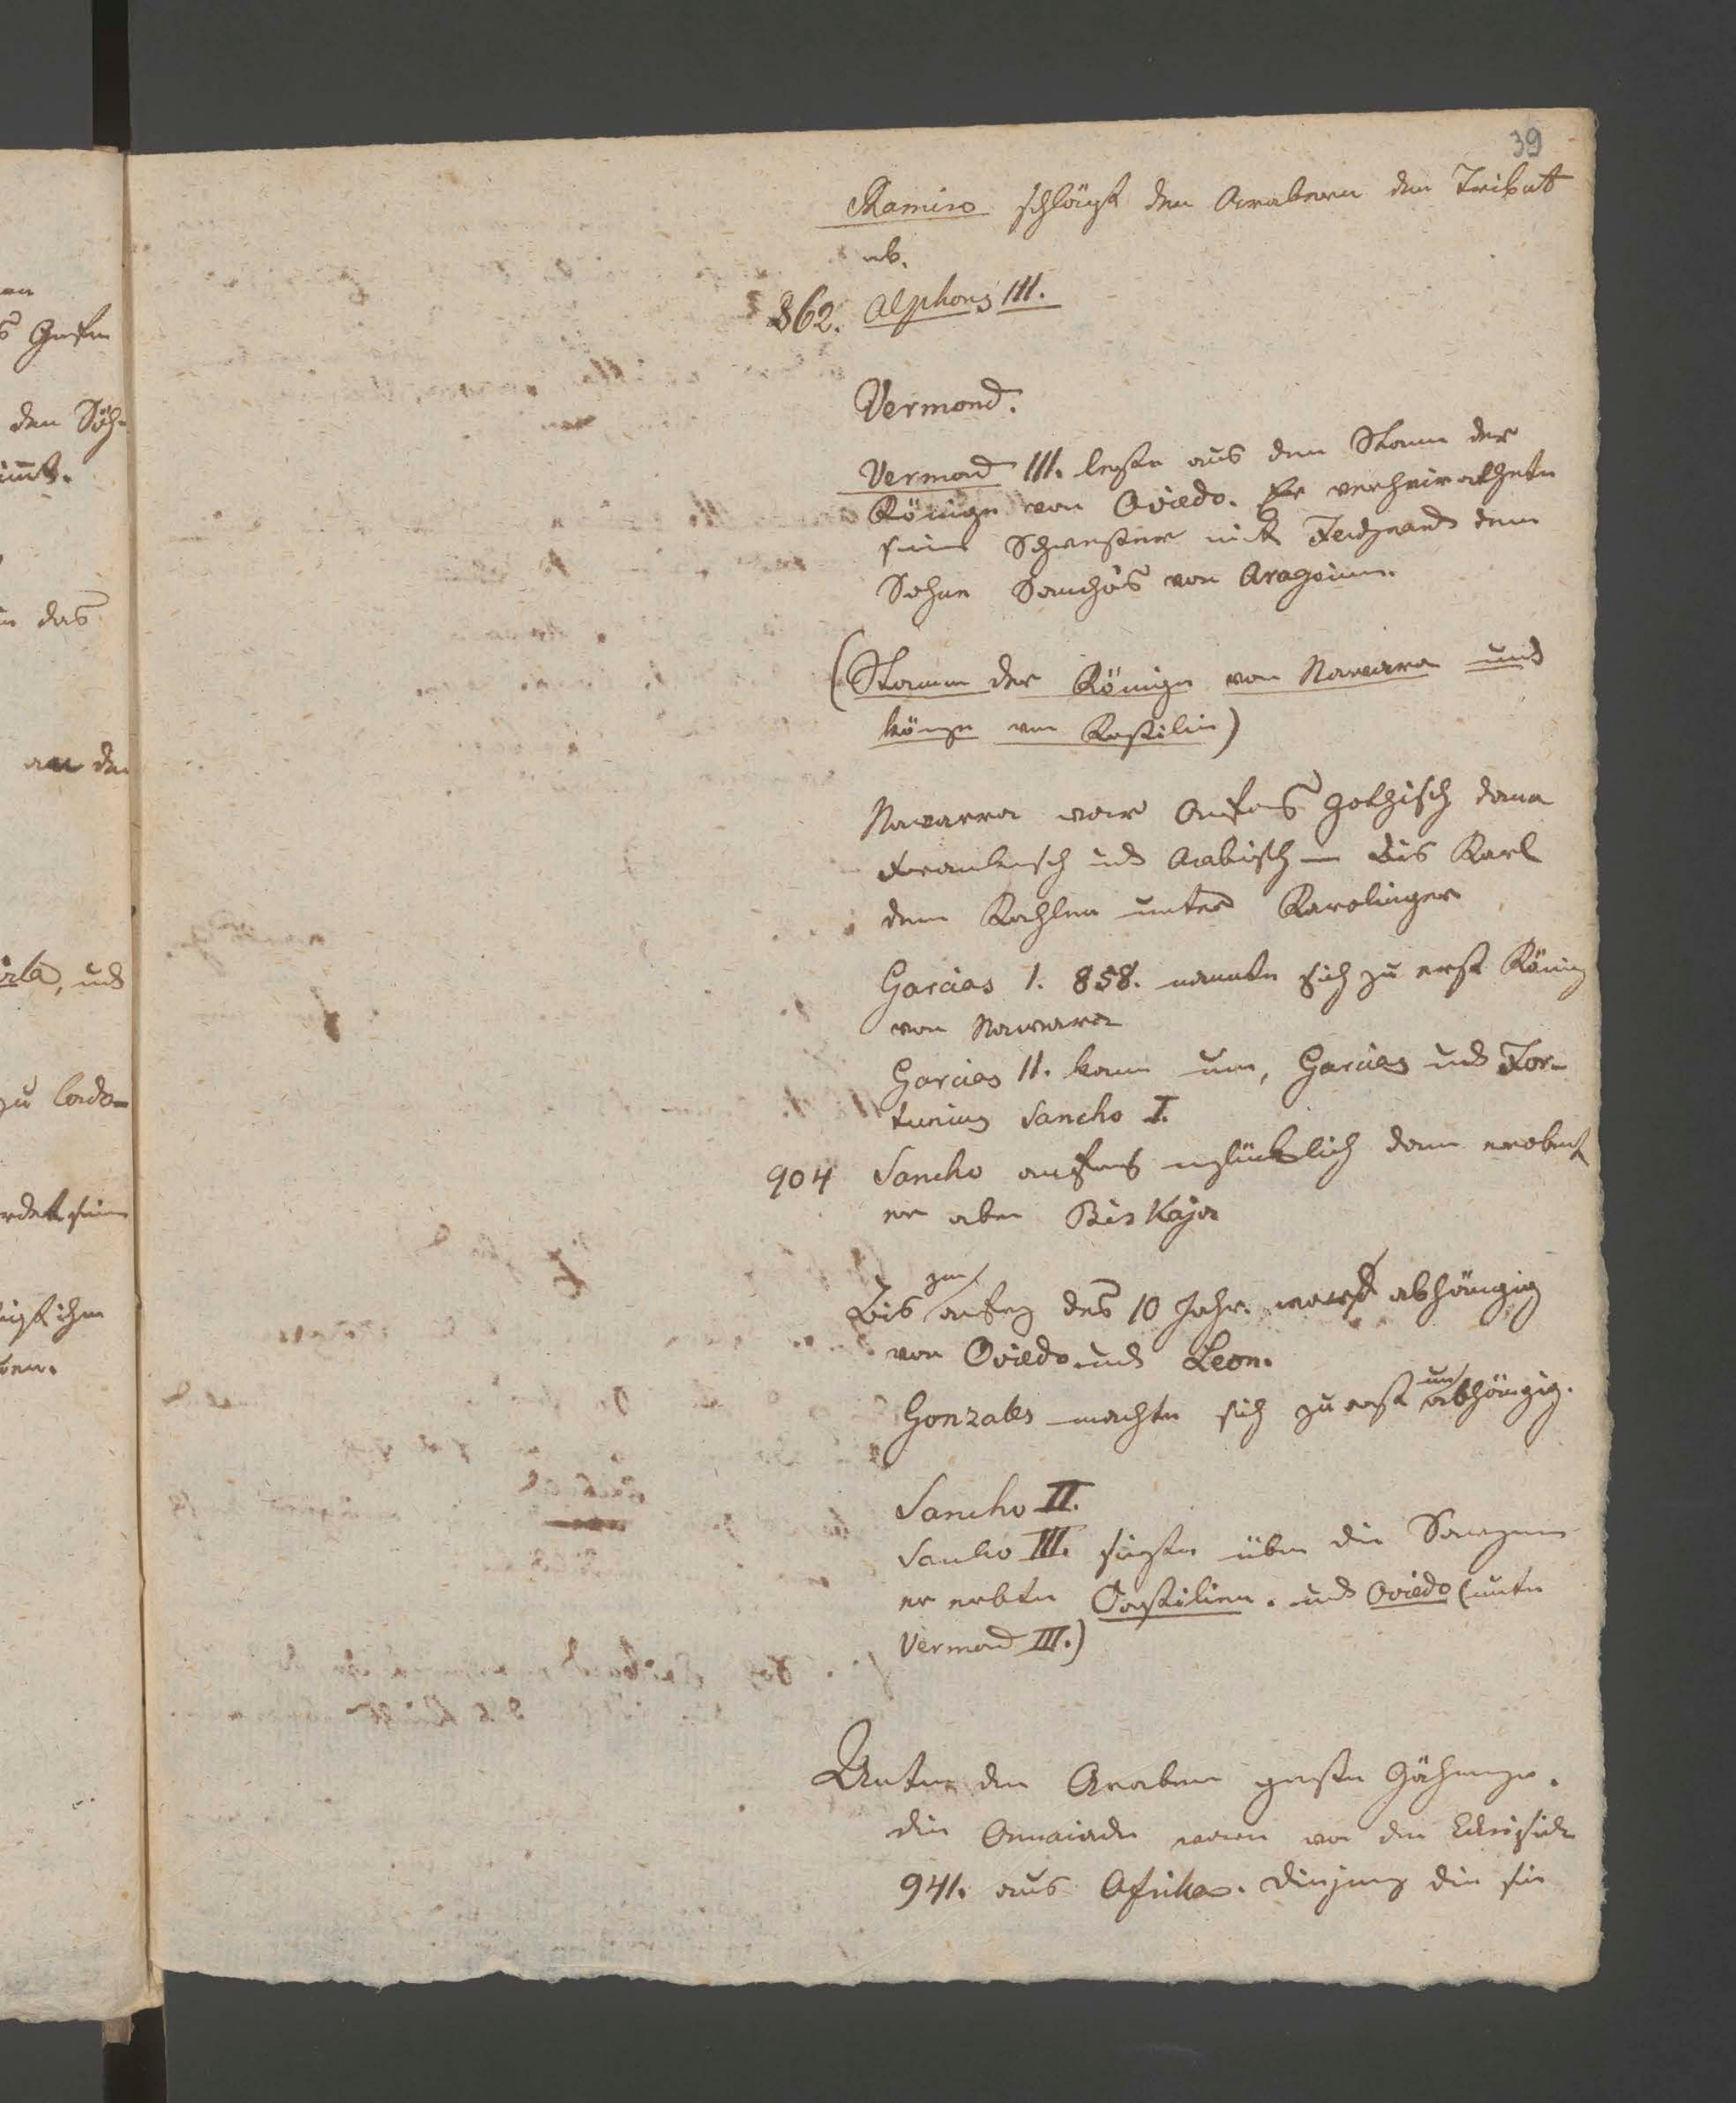 39
Ramiro schlägt den Arabern den Tribut
ab.
862. Alphons III.
Vermond.
Vermond III. letzte aus dem Stam der
Könige von Oviedo. Er verheirathete
seine Schwester mit Ferdinand dem
Sohne Sancho's von Aragonien.
(Stamm der Könige von Navara und
könge von Kastilien)
Navarra war Anfangs gothisch dann
Frankisch und Arabisch — bis Karl
dem Kahlen unter Karolinger
Garcias 1. 858. nannte sich zu erst König
von Navara
Garcias II. kam um, Garcias und For-
tunius Sancho I.
904 Sancho anfangs unglücklich dann erobert
er aber Biskaja
zum
Bis anfang des 10 Jahr. abhängig
von Oviedo und Leon.
un
Gonzales machte sich zu erst abhängig.
Sancho II.
Sancho III. siegte über die
er erbte Castilien. und Oviedo (unter
Vermond III.)
Unter den Arabern
die waren von den
941. aus Afrika. die sie
s Grafen
den Söh-
nimt.
n das
an den
, und
zu
rdet sein
ihm